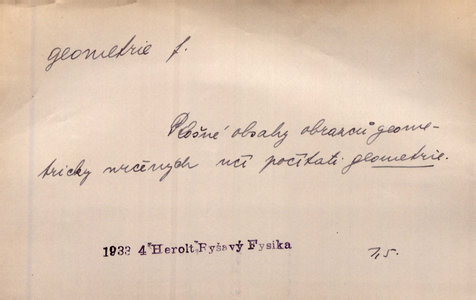 geometrie f.
Plošné obsahy obrazců geome-
tricky určených učí počítati geometrie.
1933 4"Herolt"Ryšavý Fysika
1,5.